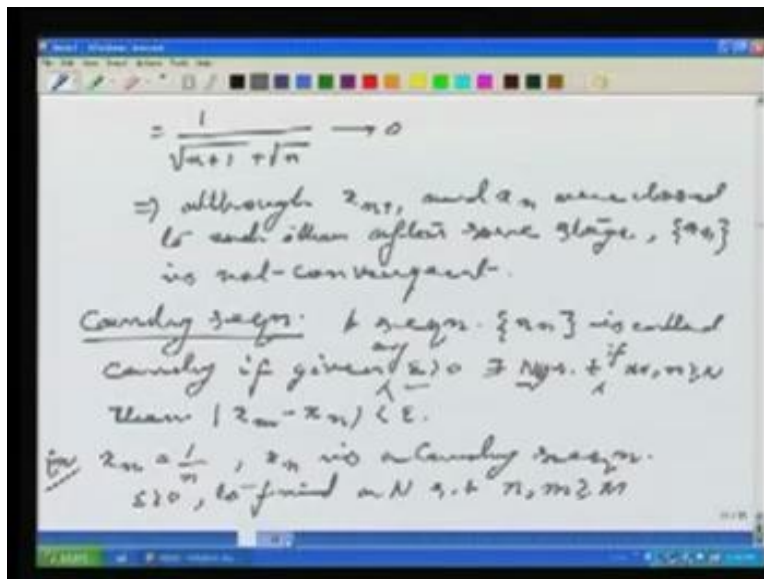 = 1/(√(n+1) + √n) → 0
⇒ although x_{n+1} and x_n are closed
to each other after some stage, {x_n}
is not convergent.
Cauchy seqn. A seqn. {x_n} is called
Cauchy if given any ε>0 ∃ N s.t. if m,n≥N
then |x_m - x_n| < ε.
Ex x_n = 1/n, x_n is a Cauchy seqn.
ε>0, to find an N s.t n,m≥N